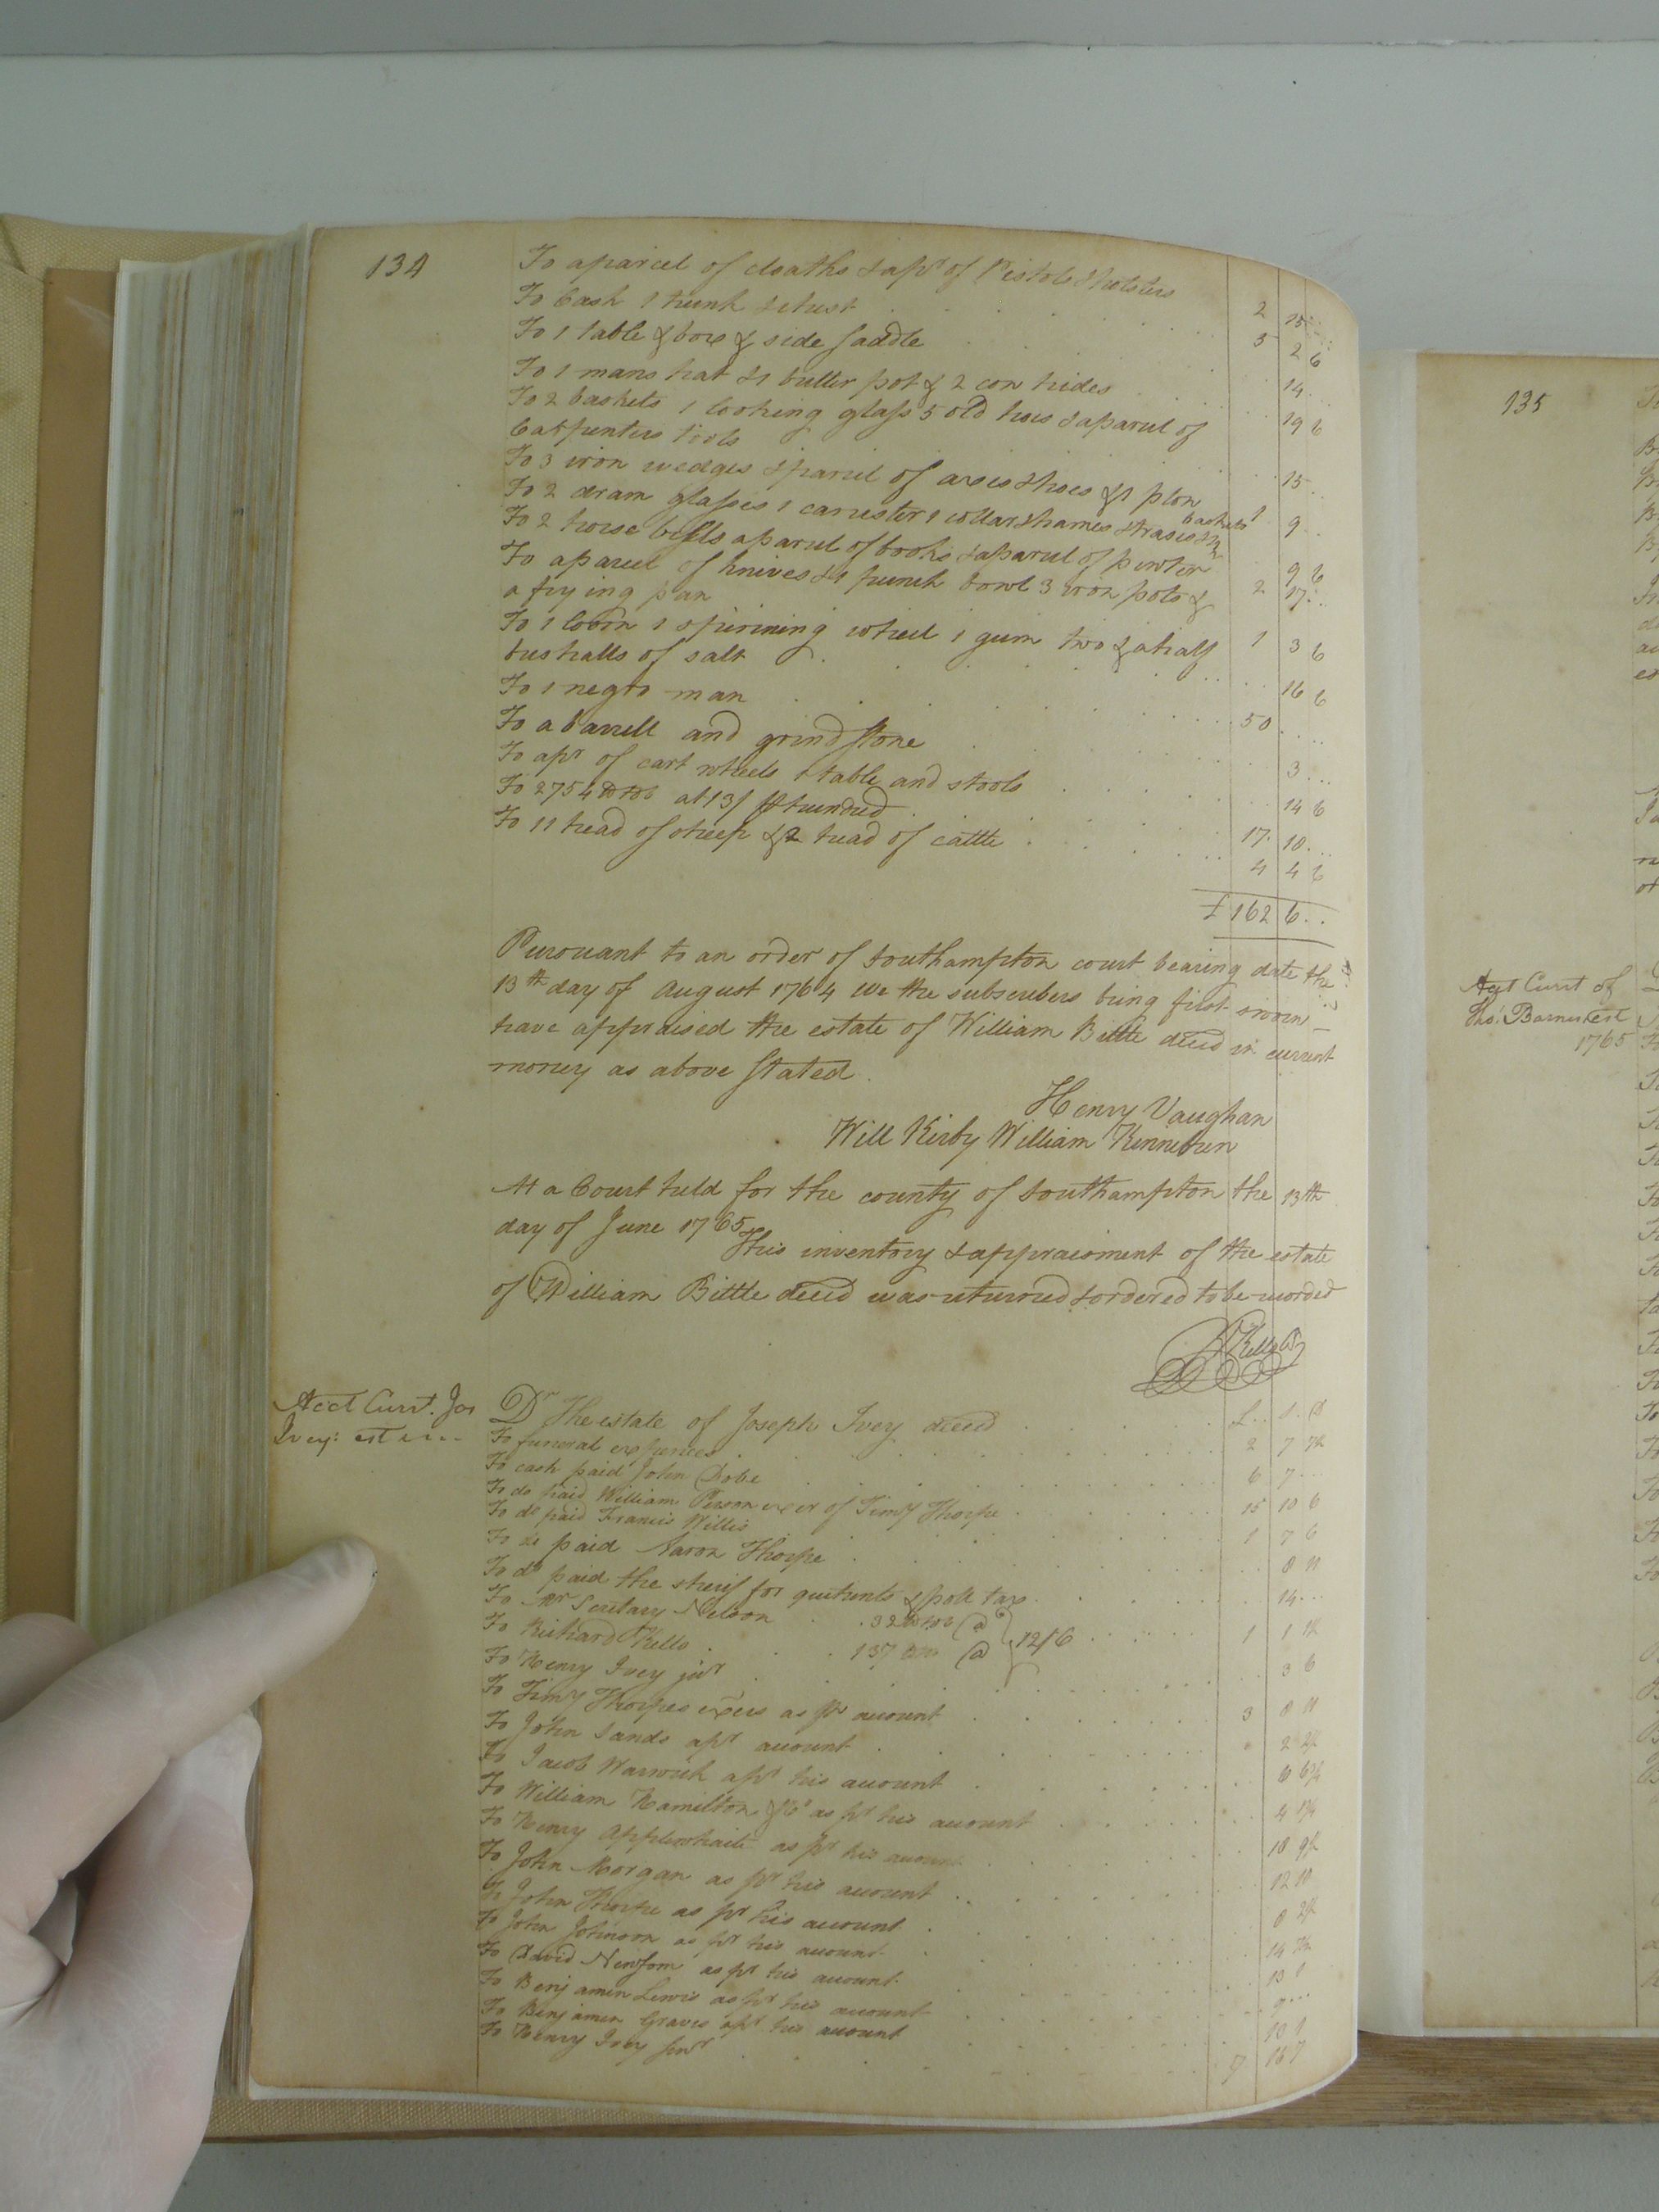 134
To a parcel of cloaths & a pr of Pistols & holsters 2 15
To Cash 1 trunk & chest 5 2 6
To 1 table & box & side saddle 14
To 1 mans hat & 1 butter pot & 2 cow hides 19 6
To 2 baskets 1 looking glass 5 old hoes & a parcel of
Carpenters tools 15
To 3 iron wedges & parcel of axes & hoes & 1 plow 1 9
To 2 dram glasses 1 canester 1 collar & hames & trases & 2 baskets 9 6
To 2 horse bells a parcel of books & a parcel of pewter 2 17
To a parcel of knives & 1 punch bowl 3 iron pots &
a frying pan 1 3 6
To 1 loom 1 spinning wheel 1 gum two & a half
bushalls of salt 16 6
To 1 negro man 50
To a barrell and grindstone 3
To a pr of cart wheels 1 table and stools 14 6
To 2754 at 13/ hundred 17 18
To 11 head of sheep & 2 head of cattle 4 4 6
£ 162 6
Pursuant to an order of Southampton court bearing date the
13th day of August 1764 We the subscribers being first sworn
have appraised the estate of William Bittle decd in current
money as above stated
Henry Vaughan
Will Kirby William Kinnebren
At a Court held for the county of Southampton the 13th
day of June 1765
This inventory & appraisment of the estate
of William Bittle decd was returned & ordered to be recorded
R Kello
Acct Currt. Jos
Ivey: est
Dr The estate of Joseph Ivey decd £ S D
To funeral expences 2 7
To cash paid John 6 7
To do paid William Person exer of Timy Thorpe 15 10 6
To do paid Francis Willis 1 7 6
To do paid Aaron Thorpe 8 11
To do paid the sherif for quitrents & poll tax 14
To Mr Secretary Nelson 32 @
To Richard Kello 137 @ 12/6 1 1
To Henry Ivey jur 3 6
To Timy Thorpes exers as pr account 3 8 11
To John Sands a pr account 2
To Jacob Warwick a pr his account 6
To William Hamilton & Co as pr his account 4
To Henry Applewhaite as pr his account 18
To John Morgan as pr his account 12 10
To John Thorpe as pr his account 8
To John Johnson as pr his account 14
To David Newsom as pr his account 13 1
To Benjamin Lewis as pr his account
To Benjamin Graves a pr his account 10 1
To Henry Ivey senr 7 16 7
135
Act Curt of
Thos Barnes est
1765